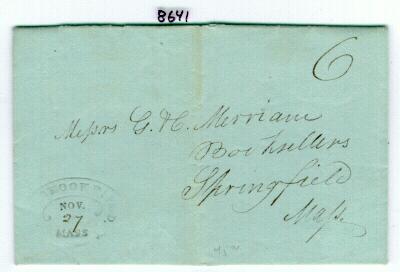 8641
6
Messrs G. & C. Merriam
Booksellers
Springfield
Mass.
NOV.
27
MASS